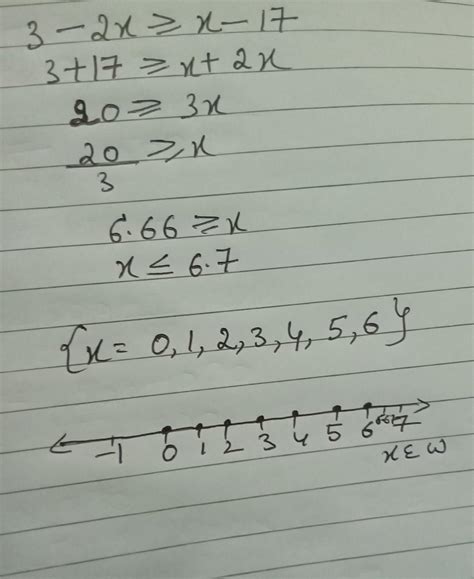 3 - 2x ≥ x - 17
3 + 17 ≥ x + 2x
20 ≥ 3x
20/3 ≥ x
6.66 ≥ x
x ≤ 6.7
{x = 0, 1, 2, 3, 4, 5, 6}
-1 0 1 2 3 4 5 6 7
x ε W